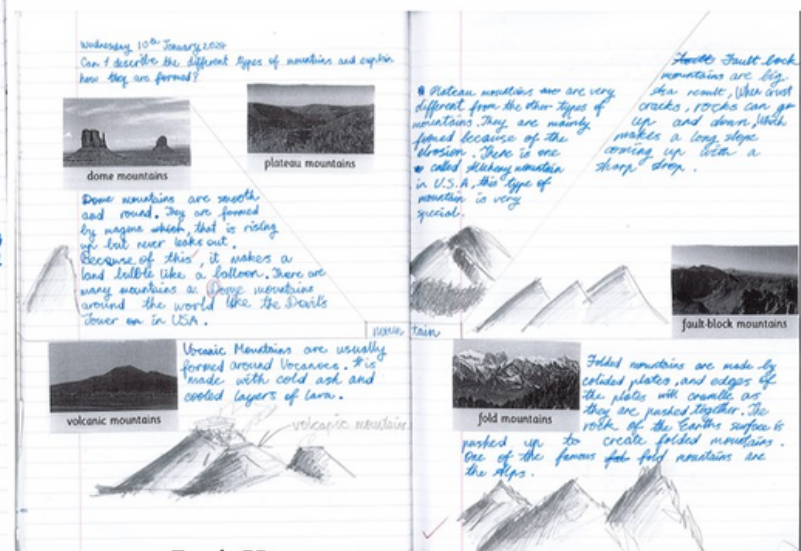 Wednesday 10th January 2024
Can I describe the different types of mountains and explain
how they are formed?
dome mountains
plateau mountains
Dome mountains are smooth
and round. They are formed
by magma which, that is rising
up but never leaks out.
Because of this, it makes a
land bubble like a balloon. There are
many mountains a Dome mountains
around the world like the Devils
Tower on in USA.
moun
tain
volcanic mountains
Vocanic Mountains are usually
formed around Vocanoes. It is
made with cold ash and
cooled layers of lava.
volcanic mountains
Plateau mountains are very
different from the other types of
mountains. They are mainly
formed because of the
erosion. There is one
called mountain
in U.S.A, this type of
mountain is very
special.
Fault bock
mountains are big
result, When crust
cracks, rocks can go
up and down, Which
makes a long slope
coming up with a
sharp drop.
fault-block mountains
fold mountains
Folded mountains are made by
colided plates, and edges of
the plates will crumble as
they are pushed together. The
rock of the Earths surface is
pushed up to create folded mountains.
One of the famous fold mountains are
the Alps.